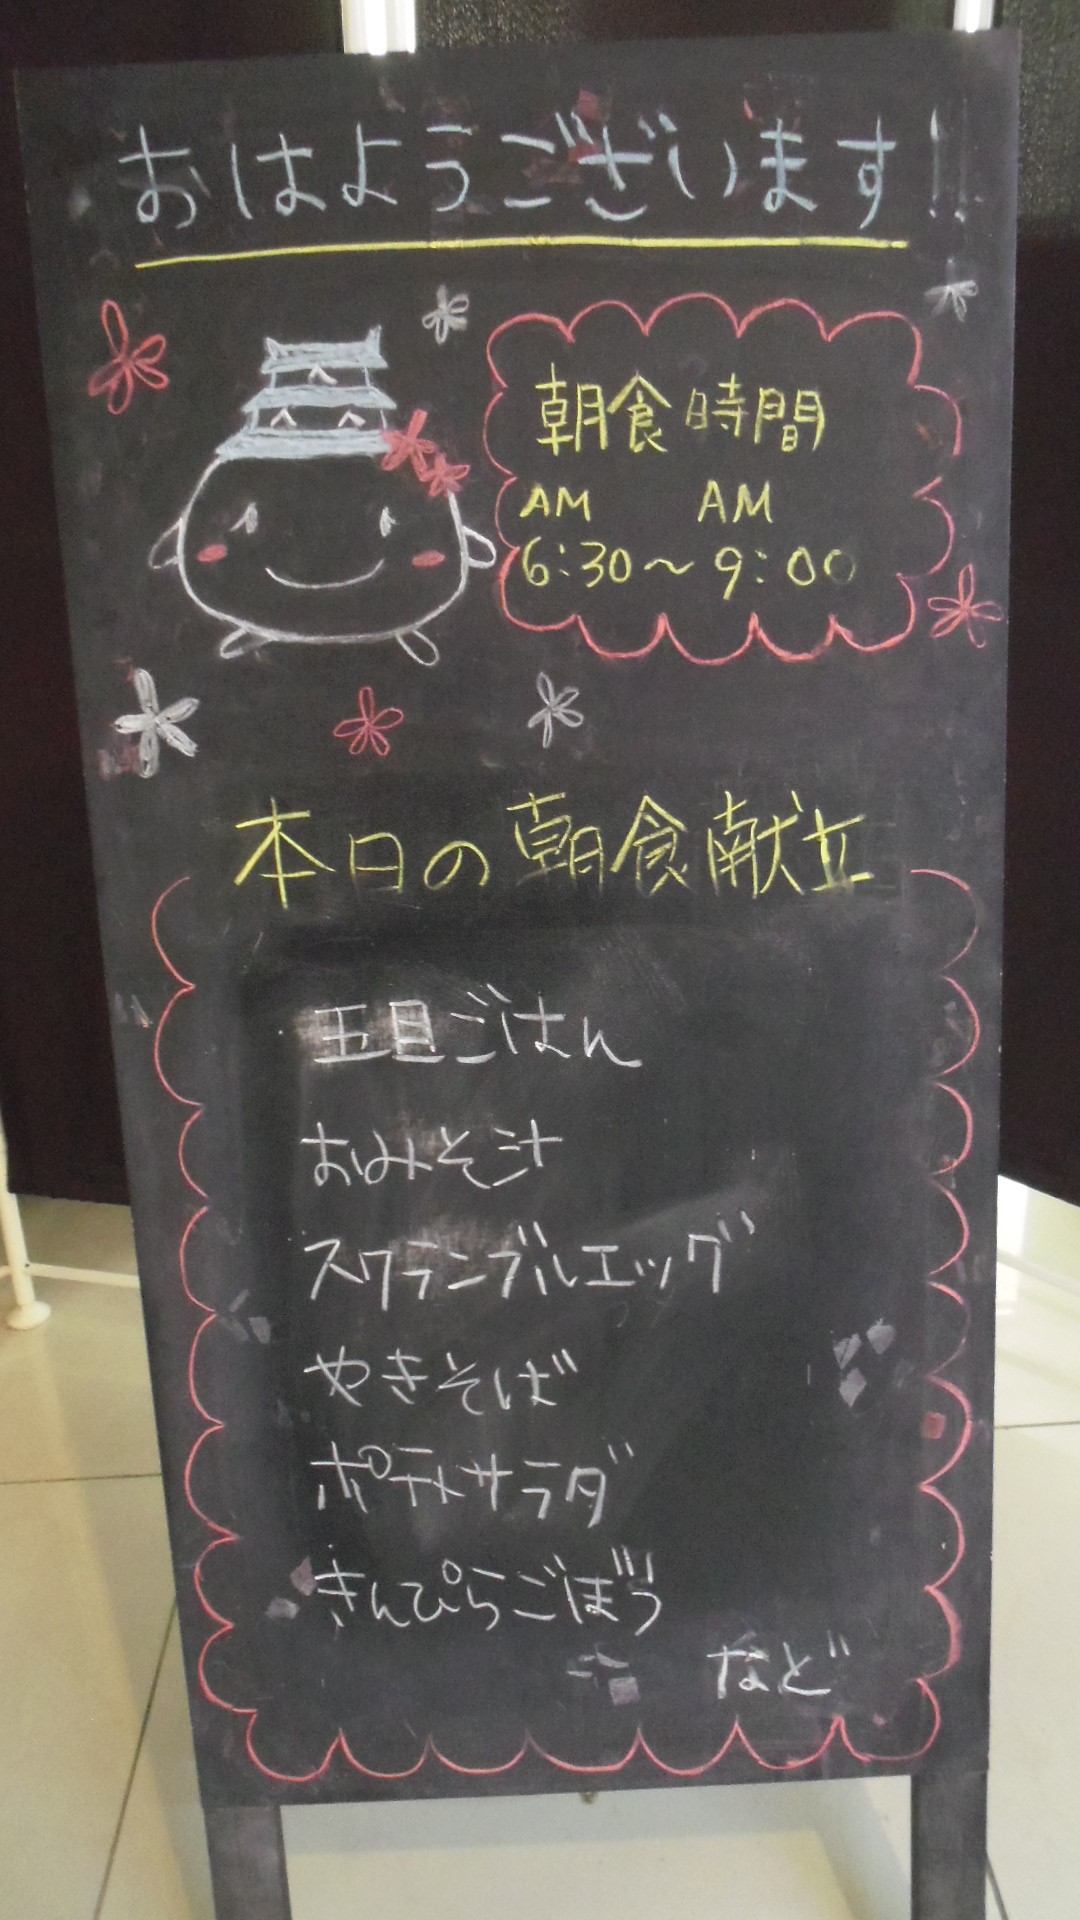 おはようございます!!
朝食時間
AM AM
6:30〜9:00
本日の朝食献立
五目ごはん
おみそ汁
スクランブルエッグ
やきそば
ポテトサラダ
きんぴらごぼう
など